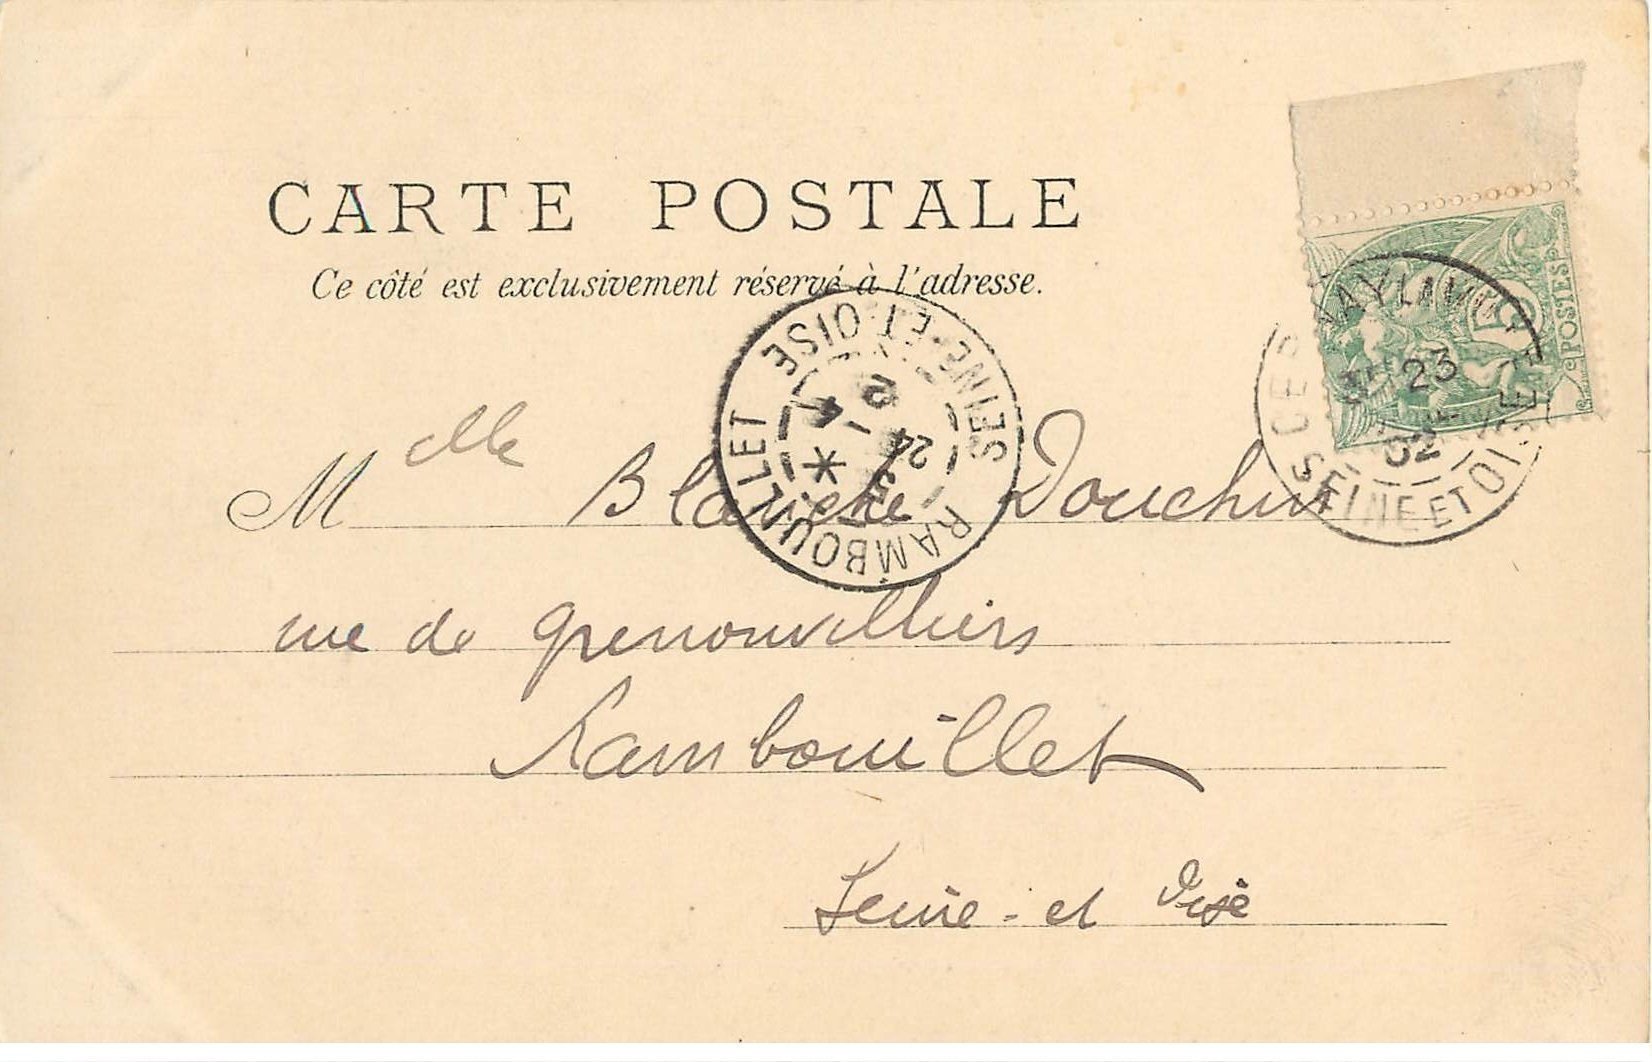 CARTE POSTALE
Ce côté est exclusivement réservé à l'adresse.
POSTES
5
23
02
SEINE ET OISE
SEINE-ET-OISE
24
RAMBOUILLET
Mlle Blanche Douchin
rue de Grenonvilliers
Rambouillet
Seine-et Oise